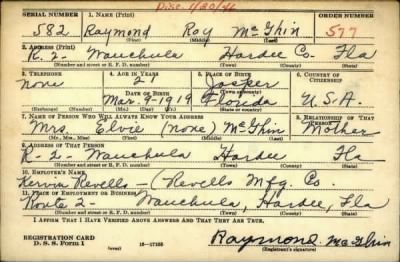 Disc. 1/20/46
SERIAL NUMBER 1. NAME (Print) ORDER NUMBER
582 Raymond Roy McGhin 577
(First) (Middle) (Last)
2. ADDRESS (Print)
R-2- Wauchula Hardee Co. Fla
(Number and street or R. F. D. number) (Town) (County) (State)
3. TELEPHONE 4. AGE IN YEARS 5. PLACE OF BIRTH 6. COUNTRY OF CITIZENSHIP
none 21 Jasper
DATE OF BIRTH (Town or county)
Mar. 1919 Florida U.S.A.
(Exchange) (Number) (Mo.) (Day) (Yr.) (State or country)
7. NAME OF PERSON WHO WILL ALWAYS KNOW YOUR ADDRESS 8. RELATIONSHIP OF THAT PERSON
Mrs. Elvie (none) McGhin Mother
(Mr., Mrs., Miss) (First) (Middle) (Last)
9. ADDRESS OF THAT PERSON
R-2 Wauchula Hardee Fla
(Number and street or R. F. D. number) (Town) (County) (State)
10. EMPLOYER'S NAME
Revells (Revells Mfg. Co.
11. PLACE OF EMPLOYMENT OR BUSINESS
Route 2- Wauchula, Hardee, Fla
(Number and street or R. F. D. number) (Town) (County) (State)
I AFFIRM THAT I HAVE VERIFIED ABOVE ANSWERS AND THAT THEY ARE TRUE.
REGISTRATION CARD
D. S. S. Form 1 16-17105 Raymond McGhin
(Registrant's signature)